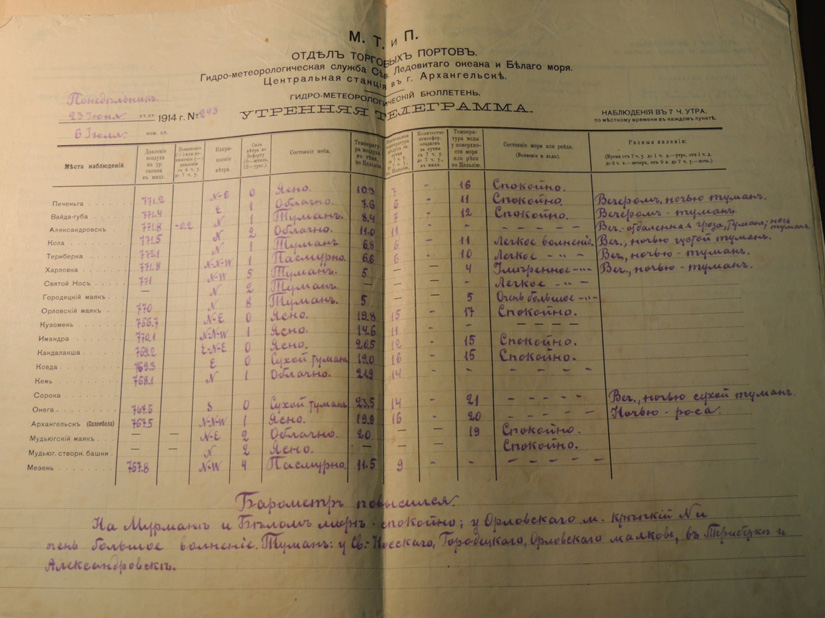 М. Т. и П.
ОТДѢЛЪ ТОРГОВЫХЪ ПОРТОВЪ.
Гидро-метеорологическая служба Сѣв. Ледовитаго океана и Бѣлаго моря.
Центральная станція въ г. Архангельскѣ.
ГИДРО-МЕТЕОРОЛОГИЧЕСКІЙ БЮЛЛЕТЕНЬ.
УТРЕННЯЯ ТЕЛЕГРАММА.
Понедѣльникъ
23 Іюня ст. ст. 1914 г. № 243
6 Іюля нов. ст.
НАБЛЮДЕНІЯ ВЪ 7 Ч. УТРА.
по мѣстному времени въ каждомъ пунктѣ.
Мѣста наблюденій
Состояніе неба.
Состояніе моря или рейда.
(Волненіе и льды).
Разныя явленія:
Печеньга 771.2 N-E 0 Ясно. 10.3 7 - 16 Спокойно.
Вайда-губа 771.4 E 1 Облачно. 7.6 6 - 11 Спокойно. Вечеромъ, ночью туманъ.
Александровскъ 771.8 -0.2 N 1 Туманъ. 8.4 7 - 12 Спокойно. Вечеромъ - туманъ.
Кола 771.5 N 2 Облачно. 11.0 - - - - - - -
Териберка N 1 Туманъ. 6.8 6 - 11 Легкое волненіе. Веч., ночью густой туманъ.
Харловка 771.8 N-N-W 1 Пасмурно. 6.6 6 - 10 Легкое - " - Веч., ночью - туманъ.
Святой Носъ 771 N-W 5 Туманъ. 5 - - 4 Умѣренное - " - Веч., ночью - туманъ.
Городецкій маякъ — — N 2 Туманъ. — - - — Легкое - " -
Орловскій маякъ 770 N 8 Туманъ. 5 - - 5 Очень большое - " -
Кузомень N-E 0 Ясно. 19.8 15 - 17 Спокойно.
Имандра 770.1 N-N-W 1 Ясно. 14.6 11 - - - - - - -
Кандалакша E-N-E 0 Ясно. 20.5 12 - 15 Спокойно.
Ковда E 0 Сухой туманъ. 19.0 16 - 15 Спокойно.
Кемь N 1 Облачно. 21.9 14 - - - - - - -
Сорока
Онега S 0 Сухой туманъ. 23.5 14 - 21 - - - - - Веч., ночью сухой туманъ.
Архангельскъ (Соломбала) 767.5 N-N-W 1 Ясно. 19.9 16 - 20 - - - - - Ночью - роса.
Мудьюгскій маякъ — — N-E 2 Облачно. 20. - - 19 Спокойно.
Мудьюг. створн. башни — — N 2 Ясно. — - - Спокойно.
Мезень 767.8 N-W 4 Пасмурно. 11.5 9 - - - - - - -
Барометръ повысился.
На Мурманѣ и Бѣломъ морѣ - спокойно; у Орловскаго м. крѣпкій N и
очень большое волненіе. Туманъ: у Св.-Носскаго, Городецкаго, Орловскаго маяковъ, въ Териберкѣ и
Александровскѣ.